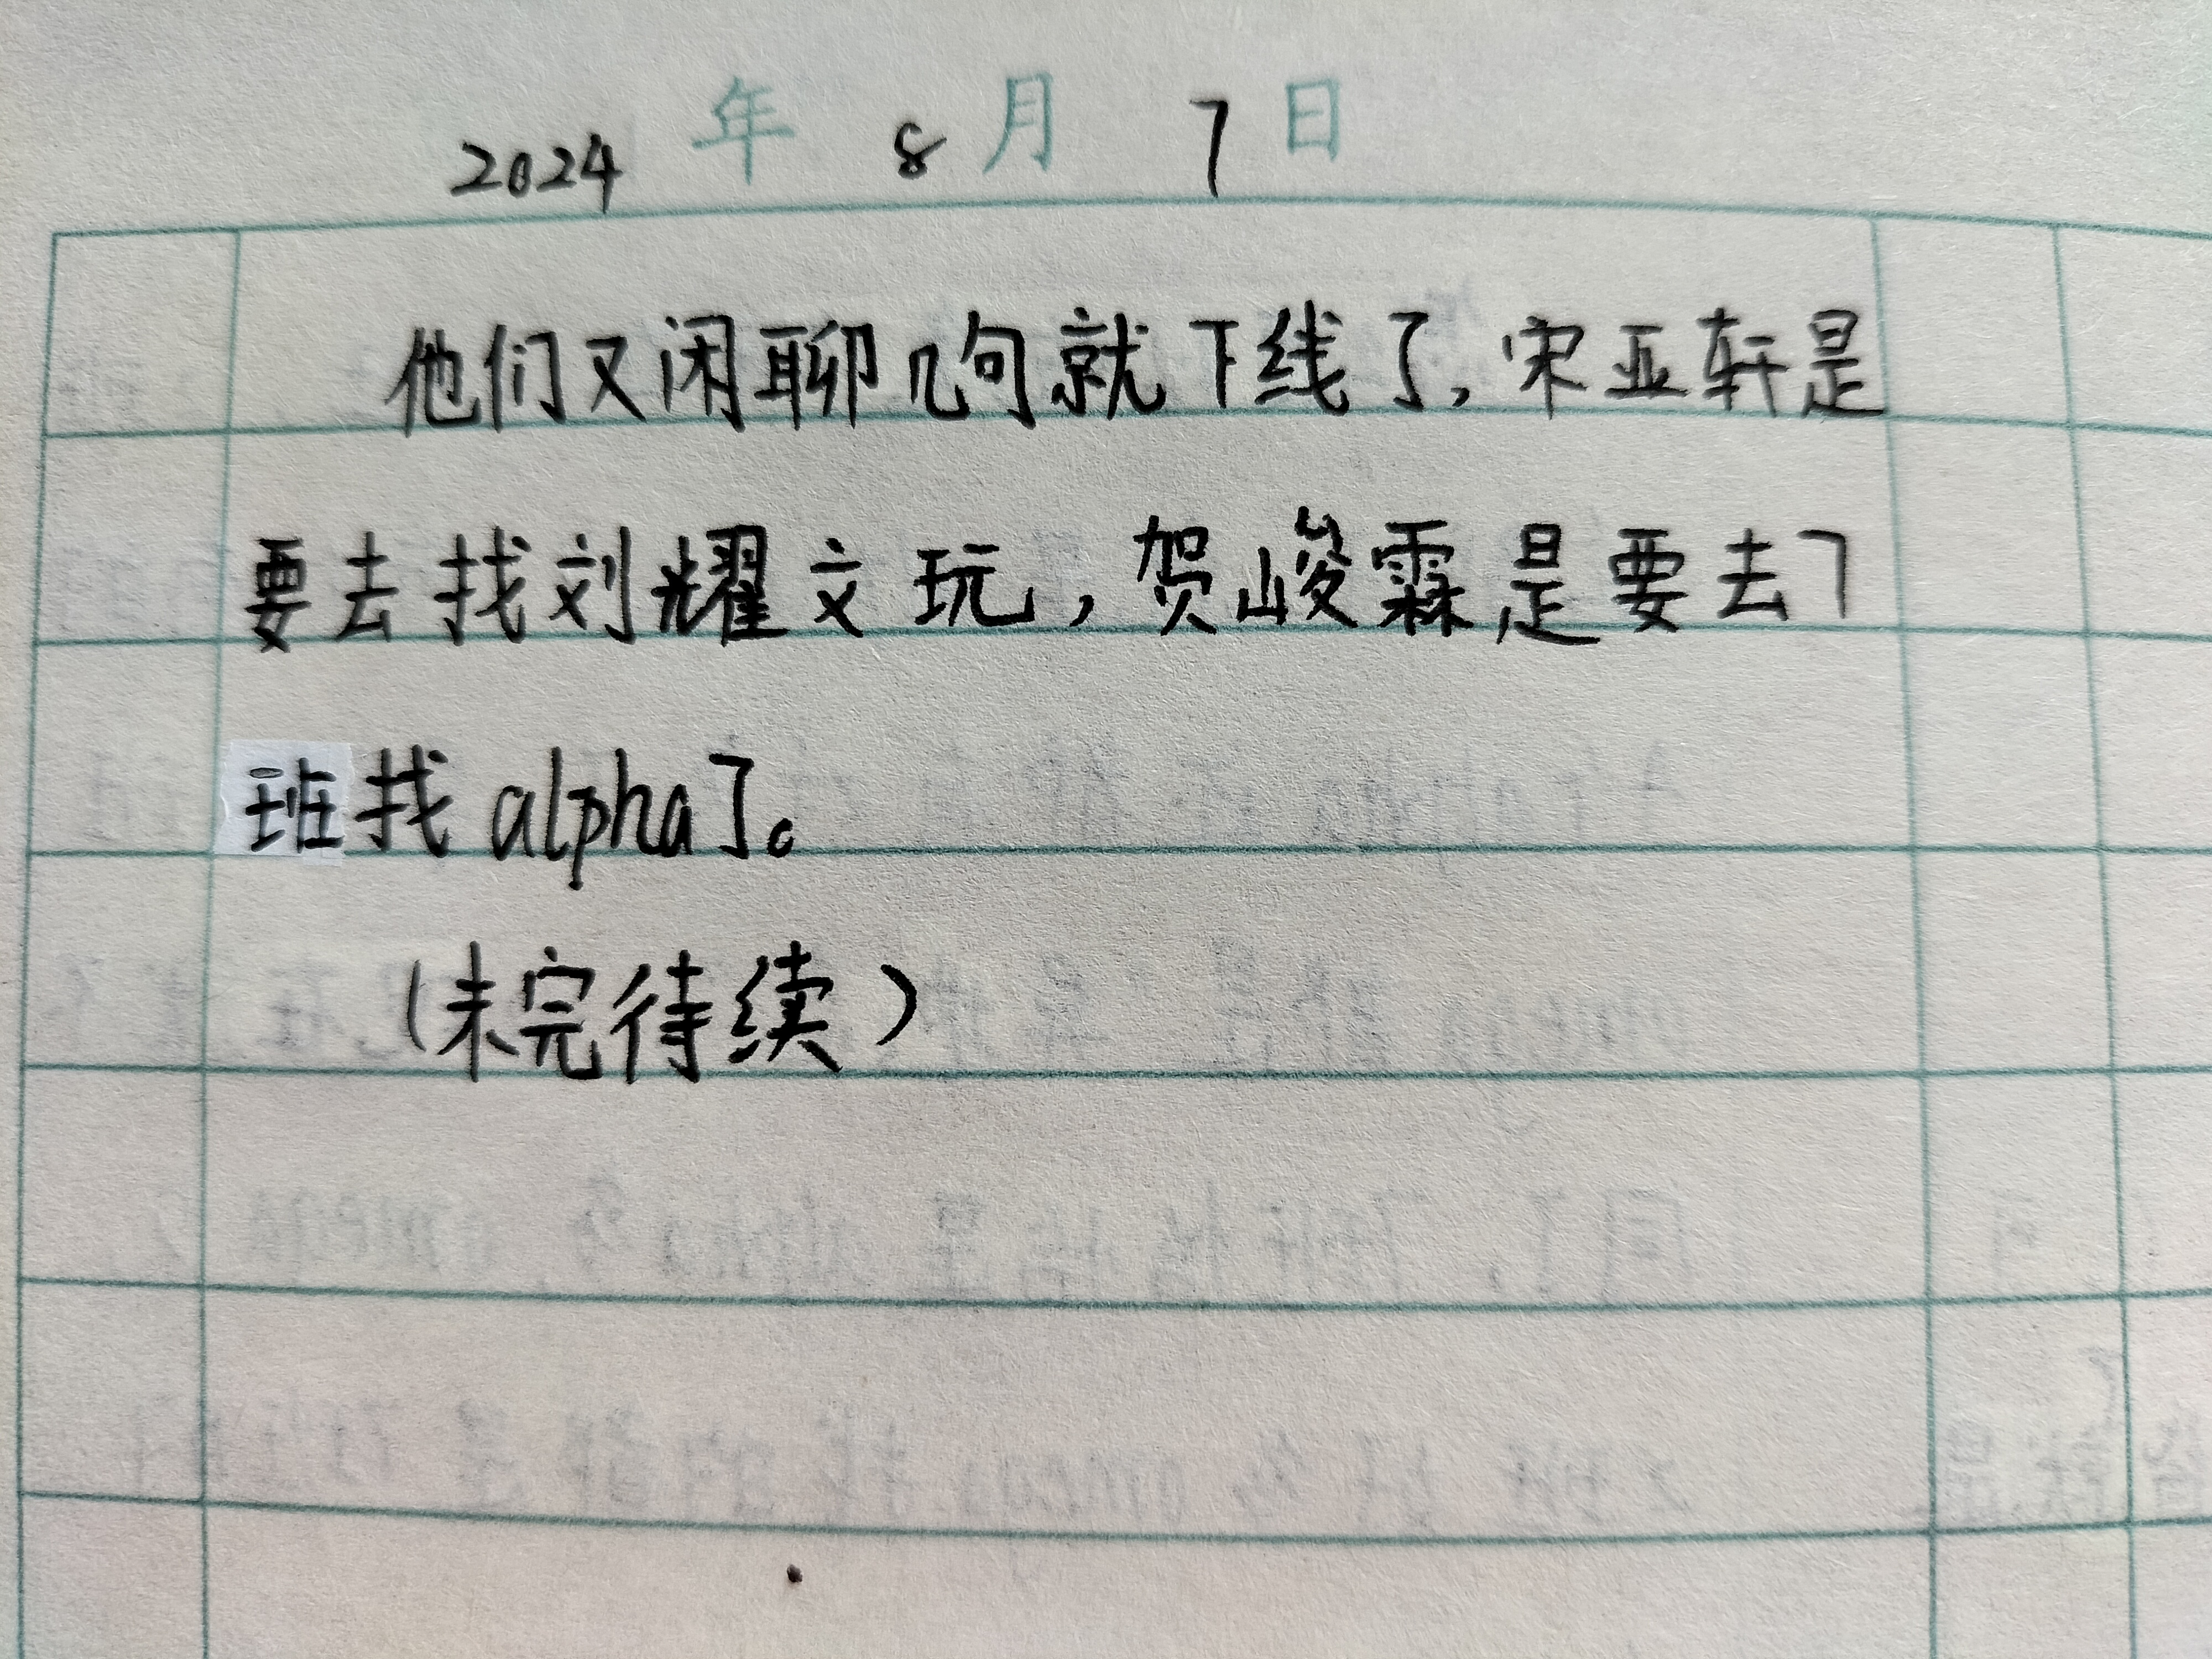 2024 年 8 月 7 日
他们又闲聊几句就下线了，宋亚轩是
要去找刘耀文玩，贺峻霖是要去7
班找alpha了。
（未完待续）